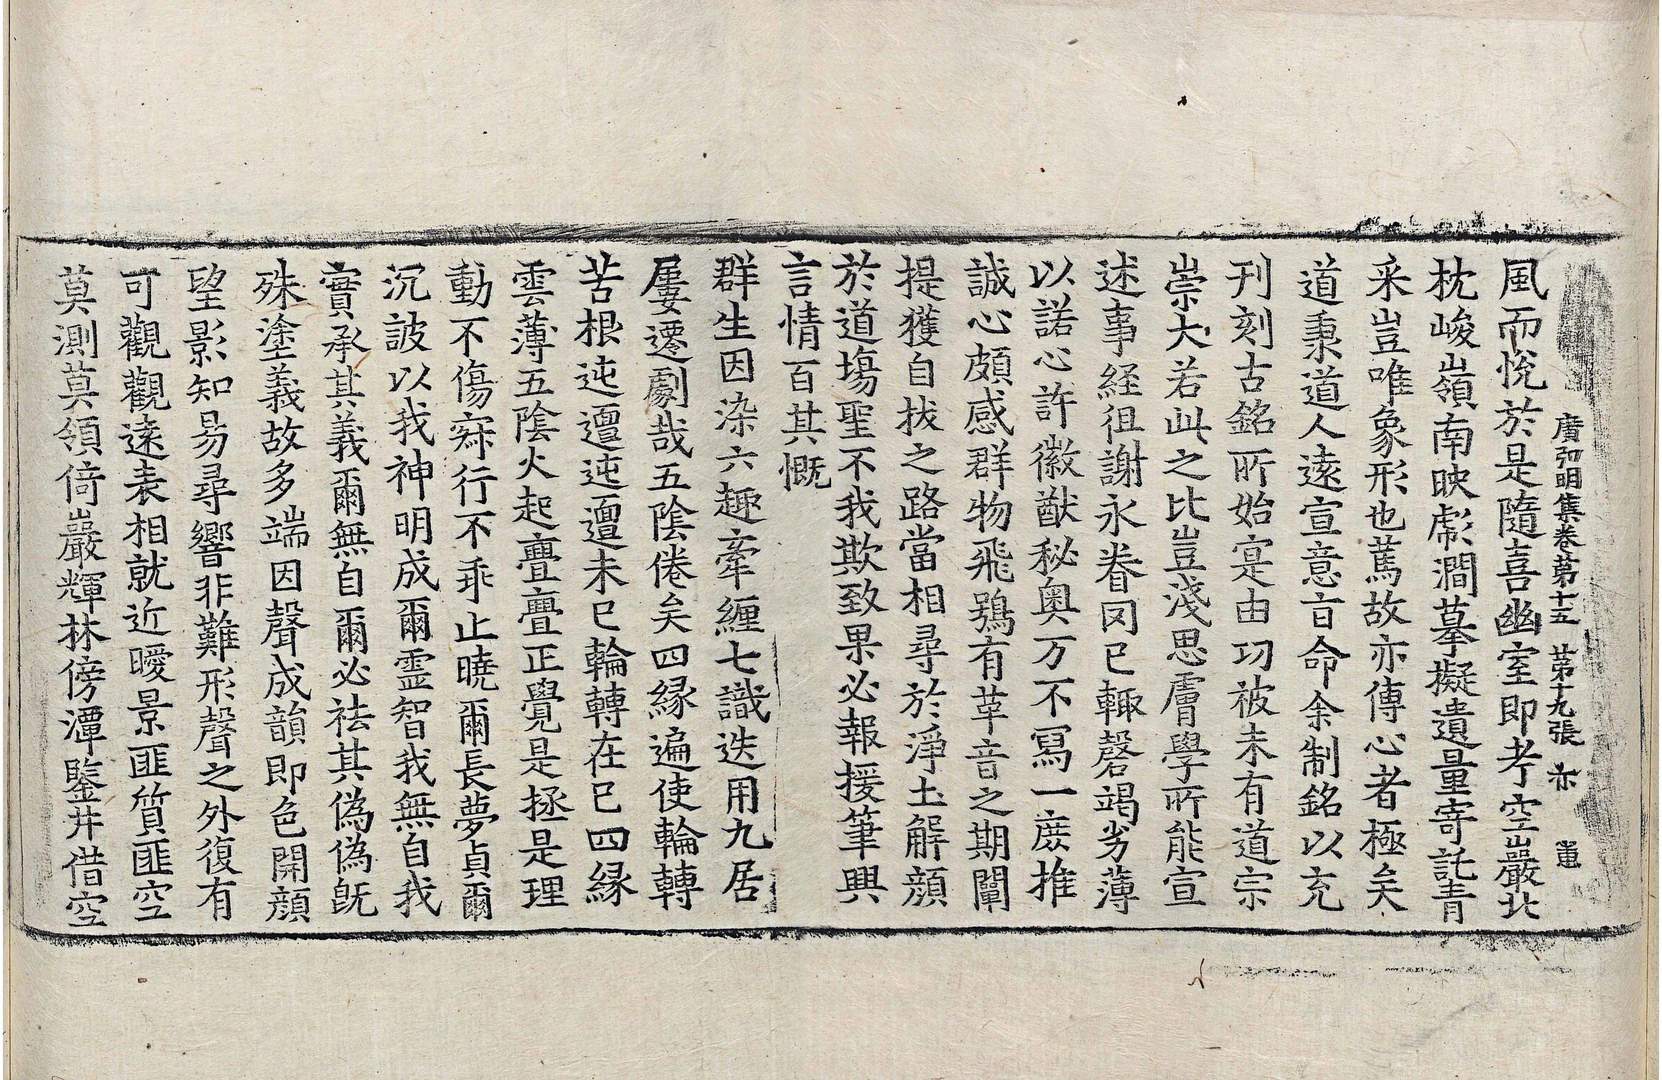 廣弘明集卷第十五 第十九張 亦
風而悅於是隨喜幽室即考空巖北
枕峻嶺南映滮澗摹擬遺量寄託青
采豈唯象形也萬故亦傳心者極矣
道秉道人遠宣意旨命余制銘以充
刊刻古銘所始寔由功被未有道宗
崇大若此之比豈淺思膚學所能宣
述事経徂謝永眷罔已輙磬竭劣薄
以諾心許徽猷秘奧万不寫一庶推
誠心頗感群物飛鴞有革音之期闡
提獲自拔之路當相尋於淨土解顔
於道場聖不我欺致果必報援筆興
言情百其慨
群生因染六趣牽纏七識迭用九居
屢遷劇哉五陰倦矣四縁遍使輪轉
苦根迍邅迍邅未已輪轉在已四縁
雲薄五陰火起亹亹正覺是拯是理
動不傷寂行不乖止曉爾長夢貞爾
沉詖以我神明成爾霊智我無自我
實承其義爾無自爾必祛其偽偽旣
殊塗義故多端因聲成韻即色開顔
望影知易尋響非難形聲之外復有
可觀觀遠表相就近曖景匪質匪空
莫測莫領倚巖輝林傍潭鑒井借空